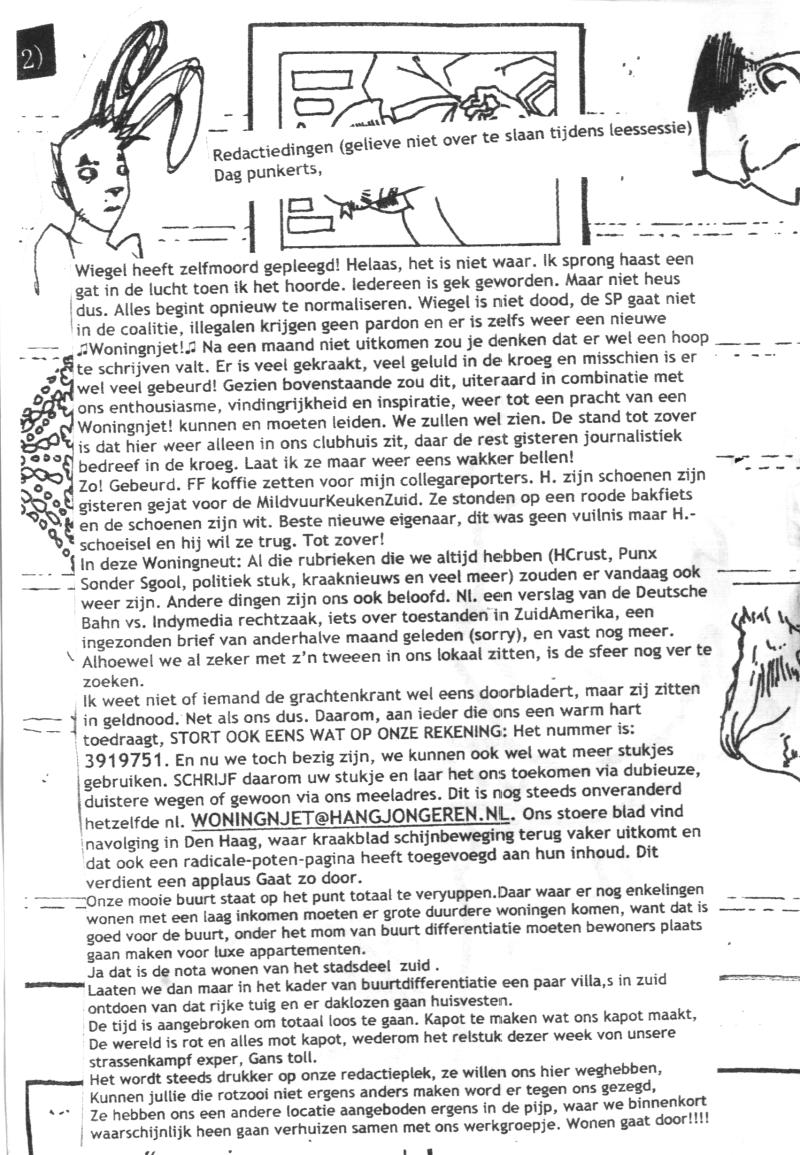 2)
Redactiedingen (gelieve niet over te slaan tijdens leessessie)
Dag punkerts,
Wiegel heeft zelfmoord gepleegd! Helaas, het is niet waar. Ik sprong haast een
gat in de lucht toen ik het hoorde. Iedereen is gek geworden. Maar niet heus
dus. Alles begint opnieuw te normaliseren. Wiegel is niet dood, de SP gaat niet
in de coalitie, illegalen krijgen geen pardon en er is zelfs weer een nieuwe
♫Woningnjet!♫ Na een maand niet uitkomen zou je denken dat er wel een hoop
te schrijven valt. Er is veel gekraakt, veel geluld in de kroeg en misschien is er
wel veel gebeurd! Gezien bovenstaande zou dit, uiteraard in combinatie met
ons enthousiasme, vindingrijkheid en inspiratie, weer tot een pracht van een
Woningnjet! kunnen en moeten leiden. We zullen wel zien. De stand tot zover
is dat hier weer alleen in ons clubhuis zit, daar de rest gisteren journalistiek
bedreef in de kroeg. Laat ik ze maar weer eens wakker bellen!
Zo! Gebeurd. FF koffie zetten voor mijn collegareporters. H. zijn schoenen zijn
gisteren gejat voor de MildvuurKeukenZuid. Ze stonden op een roode bakfiets
en de schoenen zijn wit. Beste nieuwe eigenaar, dit was geen vuilnis maar H.-
schoeisel en hij wil ze trug. Tot zover!
In deze Woningneut: Al die rubrieken die we altijd hebben (HCrust, Punx
Sonder Sgool, politiek stuk, kraaknieuws en veel meer) zouden er vandaag ook
weer zijn. Andere dingen zijn ons ook beloofd. Nl. een verslag van de Deutsche
Bahn vs. Indymedia rechtzaak, iets over toestanden in ZuidAmerika, een
ingezonden brief van anderhalve maand geleden (sorry), en vast nog meer.
Alhoewel we al zeker met z'n tweeen in ons lokaal zitten, is de sfeer nog ver te
zoeken.
Ik weet niet of iemand de grachtenkrant wel eens doorbladert, maar zij zitten
in geldnood. Net als ons dus. Daarom, aan ieder die ons een warm hart
toedraagt, STORT OOK EENS WAT OP ONZE REKENING: Het nummer is:
3919751. En nu we toch bezig zijn, we kunnen ook wel wat meer stukjes
gebruiken. SCHRIJF daarom uw stukje en laar het ons toekomen via dubieuze,
duistere wegen of gewoon via ons meeladres. Dit is nog steeds onveranderd
hetzelfde nl. WONINGNJET@HANGJONGEREN.NL. Ons stoere blad vind
navolging in Den Haag, waar kraakblad schijnbeweging terug vaker uitkomt en
dat ook een radicale-poten-pagina heeft toegevoegd aan hun inhoud. Dit
verdient een applaus Gaat zo door.
Onze mooie buurt staat op het punt totaal te veryuppen.Daar waar er nog enkelingen
wonen met een laag inkomen moeten er grote duurdere woningen komen, want dat is
goed voor de buurt, onder het mom van buurt differentiatie moeten bewoners plaats
gaan maken voor luxe appartementen.
Ja dat is de nota wonen van het stadsdeel zuid .
Laaten we dan maar in het kader van buurtdifferentiatie een paar villa,s in zuid
ontdoen van dat rijke tuig en er daklozen gaan huisvesten.
De tijd is aangebroken om totaal loos te gaan. Kapot te maken wat ons kapot maakt,
De wereld is rot en alles mot kapot, wederom het relstuk dezer week von unsere
strassenkampf exper, Gans toll.
Het wordt steeds drukker op onze redactieplek, ze willen ons hier weghebben,
Kunnen jullie die rotzooi niet ergens anders maken word er tegen ons gezegd,
Ze hebben ons een andere locatie aangeboden ergens in de pijp, waar we binnenkort
waarschijnlijk heen gaan verhuizen samen met ons werkgroepje. Wonen gaat door!!!!